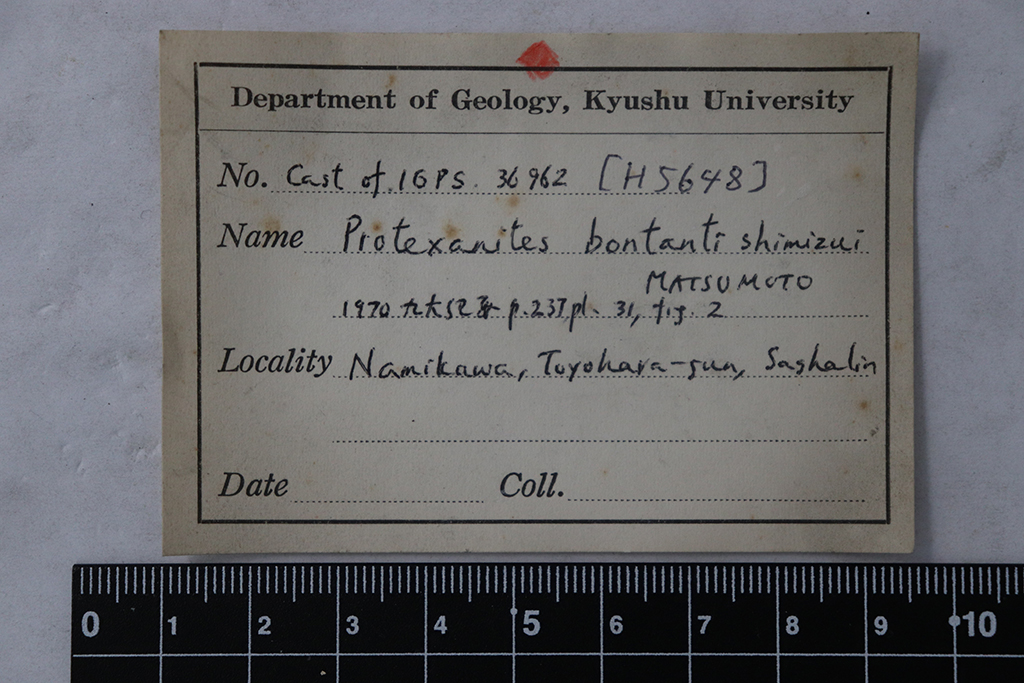 Department of Geology, Kyushu University
No. Cast of IGPS. 36962 [H5648]
Name Protexanites bontanti shimizui
MATSUMOTO
1970 九大紀要 p.237 pl. 31, fig. 2
Locality Namikawa, Toyohara-gun, Saghalin
Date Coll.
0 1 2 3 4 5 6 7 8 9 10